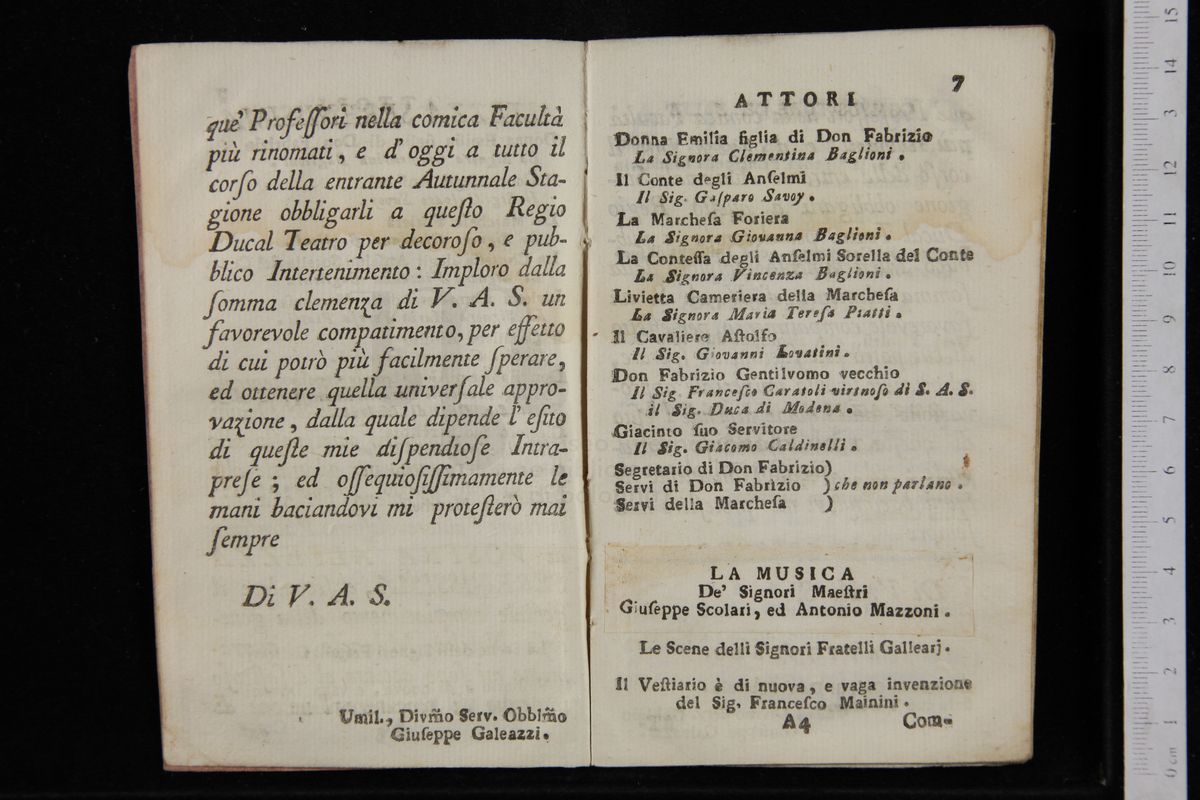 que' Profeſſori nella comica Facultà
più rinomati, e d'oggi a tutto il
corſo della entrante Autunnale Sta-
gione obbligarli a queſto Regio
Ducal Teatro per decoroſo, e pub-
blico Intertenimento: Imploro dalla
ſomma clemenza di V. A. S. un
favorevole compatimento, per effetto
di cui potrò più facilmente ſperare,
ed ottenere quella univerſale appro-
vazione, dalla quale dipende l'eſito
di queſte mie diſpendioſe Intra-
preſe; ed oſſequioſiſſimamente le
mani baciandovi mi proteſterò mai
ſempre
Di V. A. S.
Umil., Divm̃o Serv. Obblm̃o
Giuſeppe Galeazzi.
7
ATTORI
Donna Emilia figlia di Don Fabrizio
La Signora Clementina Baglioni.
Il Conte degli Anſelmi
Il Sig. Gaſparo Savoy.
La Marcheſa Foriera
La Signora Giovanna Baglioni.
La Conteſſa degli Anſelmi Sorella del Conte
La Signora Vincenza Baglioni.
Livietta Cameriera della Marcheſa
La Signora Maria Tereſa Piatti.
Il Cavaliere Aſtolfo
Il Sig. Giovanni Lovatini.
Don Fabrizio Gentilvomo vecchio
Il Sig Franceſco Caratoli virtnoſo di S. A. S.
il Sig. Duca di Modena.
Giacinto ſuo Servitore
Il Sig. Giacomo Caldinelli.
Segretario di Don Fabrizio)
Servi di Don Fabrizio ) che non parlano.
Servi della Marcheſa )
LA MUSICA
De' Signori Maeſtri
Giuſeppe Scolari, ed Antonio Mazzoni.
Le Scene delli Signori Fratelli Gallearj.
Il Veſtiario è di nuova, e vaga invenzione
del Sig. Franceſco Mainini.
A4 Com-
0 cm 1 2 3 4 5 6 7 8 9 10 11 12 3 14 15